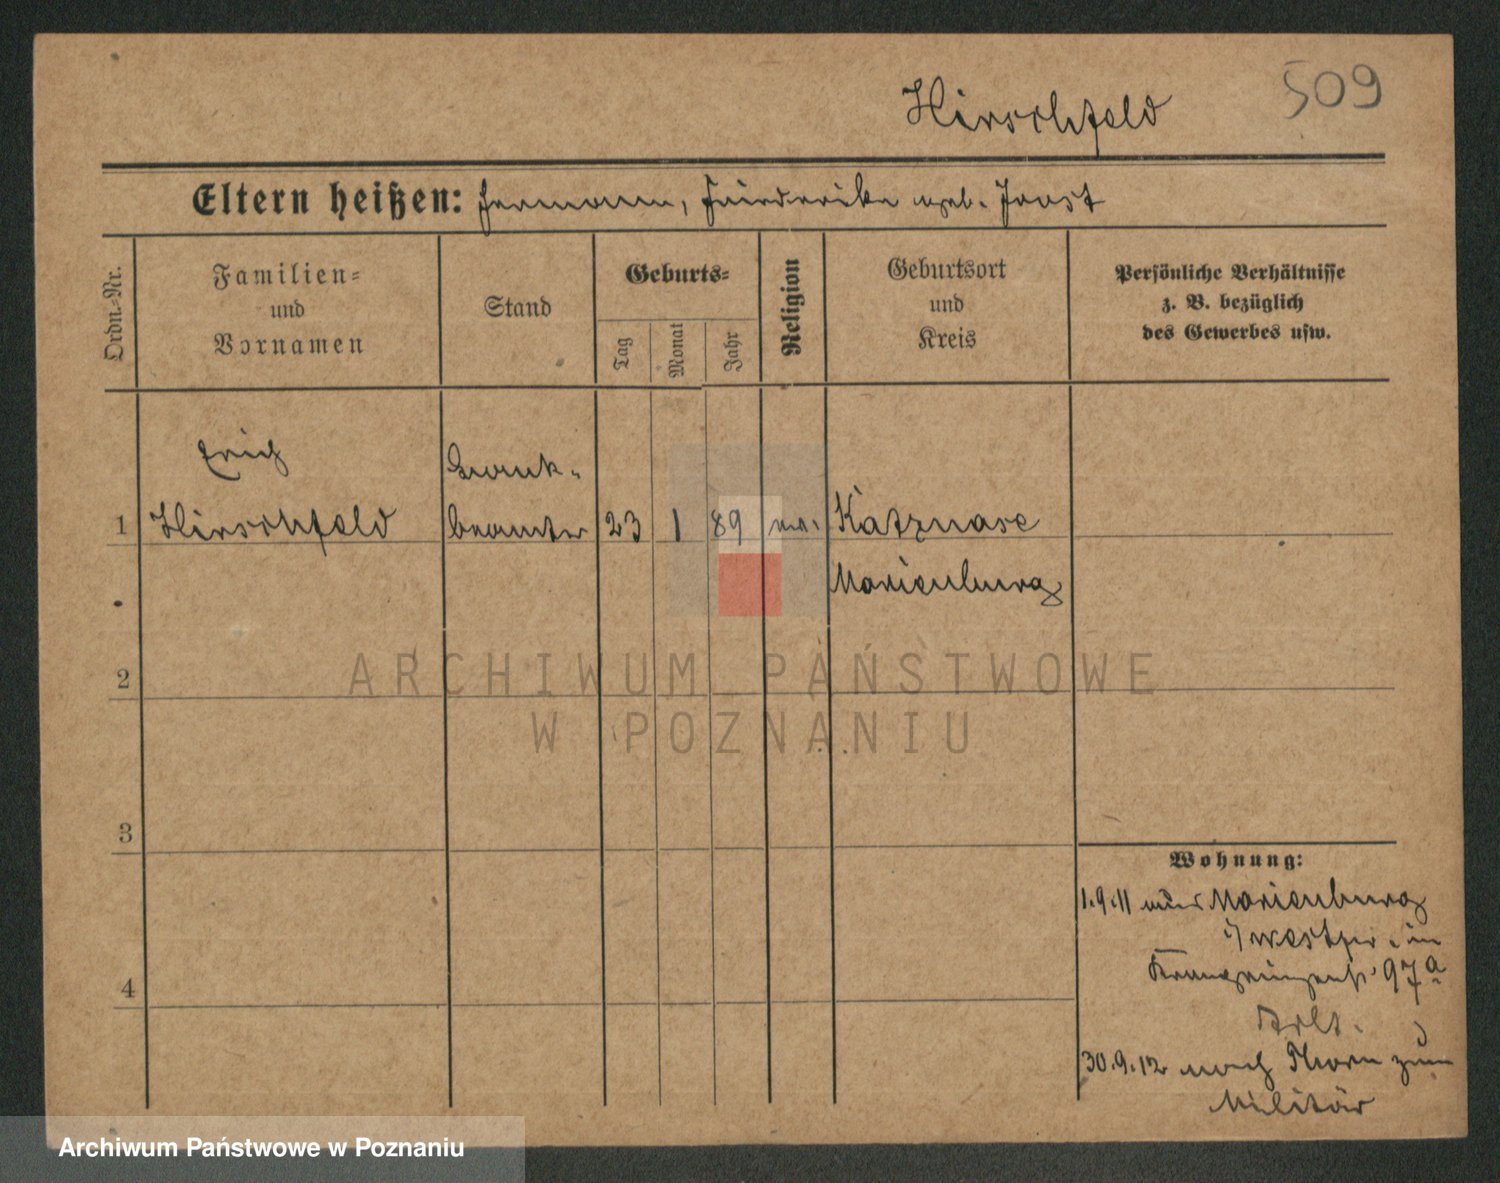 509
Hirschfeld
Eltern heißen: Hermann, Friederike geb. Joost
Ordn.-Nr.
Familien-
und
Vornamen
Stand
Geburts-
Tag
Monat
Jahr
Religion
Geburtsort
und
Kreis
Persönliche Verhältnisse
z. B. bezüglich
des Gewerbes usw.
Erich
1 Hirschfeld
Bank-
beamter
23 1 89 ev.
Katznase
Marienburg
2
3
4
Wohnung:
1.9.11 aus Marienburg
i/Westpr. in
Kronprinzenstr. 97a
30.9.12 nach Thorn zum
Militär
ARCHIWUM PAŃSTWOWE
W POZNANIU
Archiwum Państwowe w Poznaniu